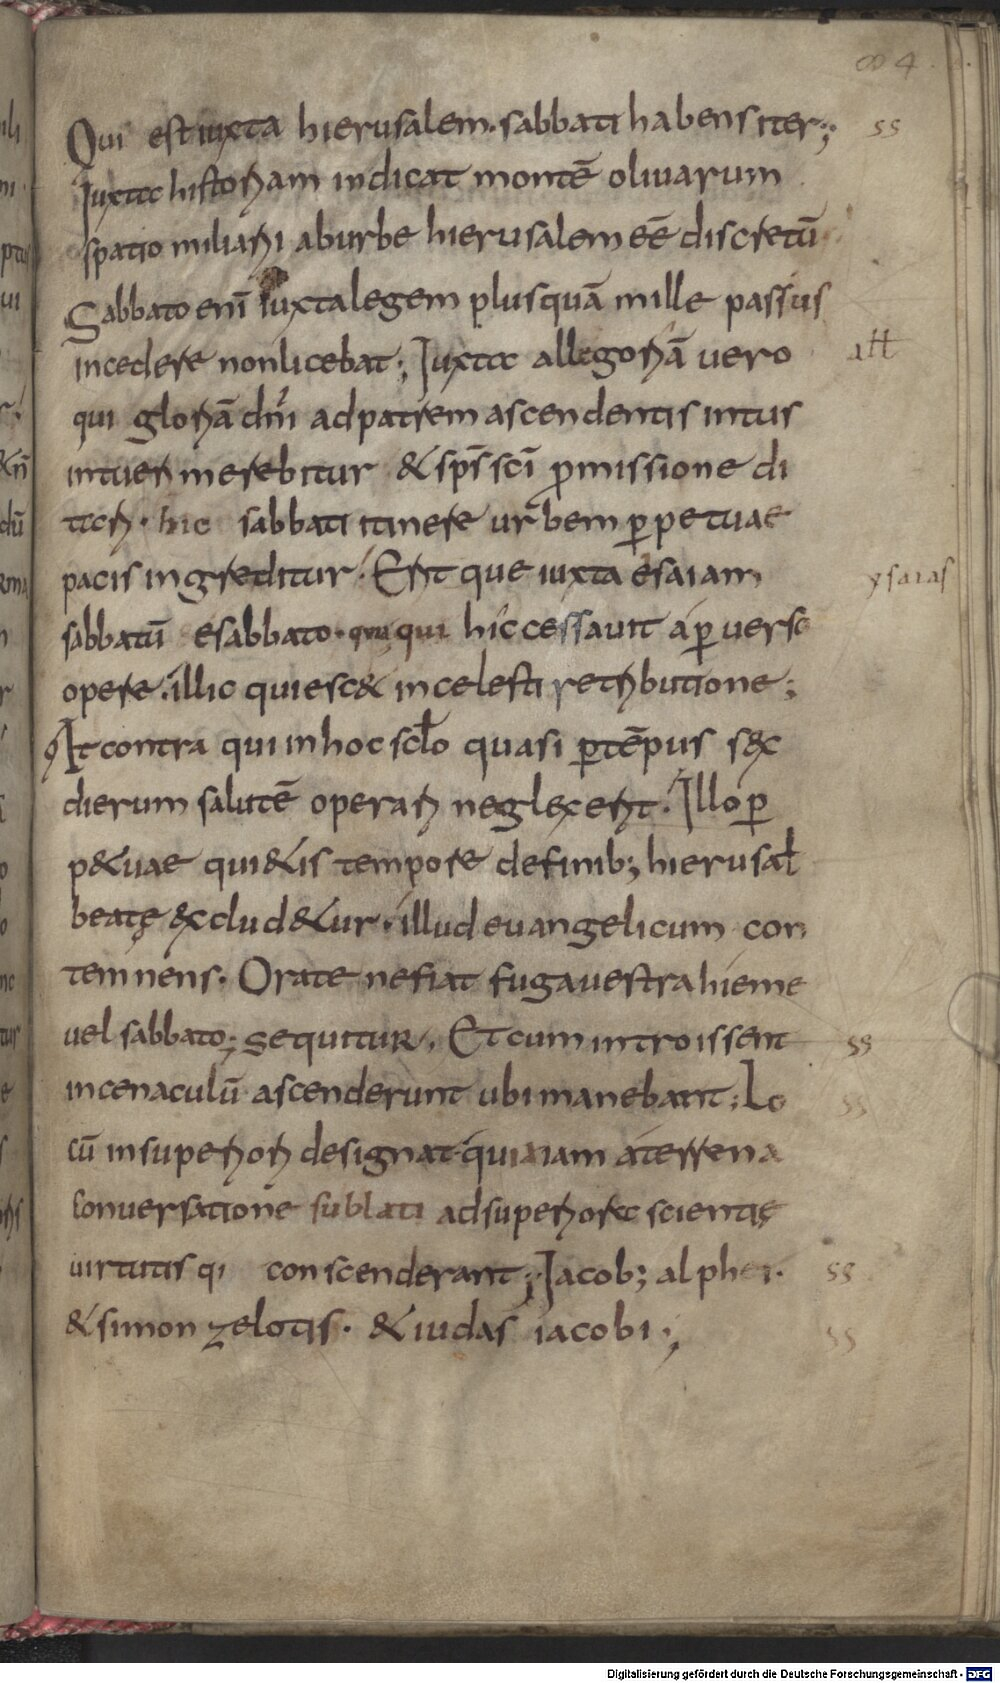 ∞ 4.
Qui est iuxta hierusalem. sabbati habens iter:; ss
Iuxta historiam indicat montē olivarum
spatio miliarii aburbe hierusalem eē discretū
Sabbato enī iuxta legem plusquā mille passus
incedere non licebat; Iuxta allegoriā vero
qui gloriā dñi ad patrem ascendentis intus
intueri merebitur & sp̄s scī promissione di
tari. hic sabbati itinere urbem ꝑpetuae
pacis ingreditur. Erit que iuxta esaiam ysaias
sabbatū esabbato. qui hic cessavit a ꝑverso
opere. illic quiesc& in celesti retributione;
At contra qui in hoc sclo quasi ꝑ tēpus sex
dierum salutē operari neglexerit. Illo ꝑ
p&uae qui&is tempore definib; hierusal
beatę exclud&ur. illud euangelicum con
temnens. Orate ne fiat fuga vestra hieme
vel sabbato; sequitur. Et cum introissent ss
in cenaculū ascenderunt ubi manebant; Lo ss
cū in superiori designat. quia iam a terrena
conversatione sublati ad superiora scientię
virtutis qi conscenderant; Iacob; alphei. ss
& simon zelotis. & iudas iacobi; ss
Digitalisierung gefördert durch die Deutsche Forschungsgemeinschaft - DFG